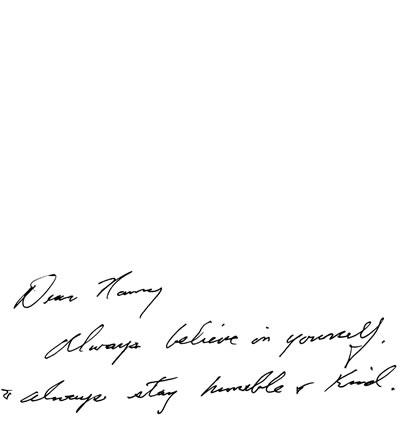 Dear Nancy
Always believe in yourself.
& always stay humble & kind.